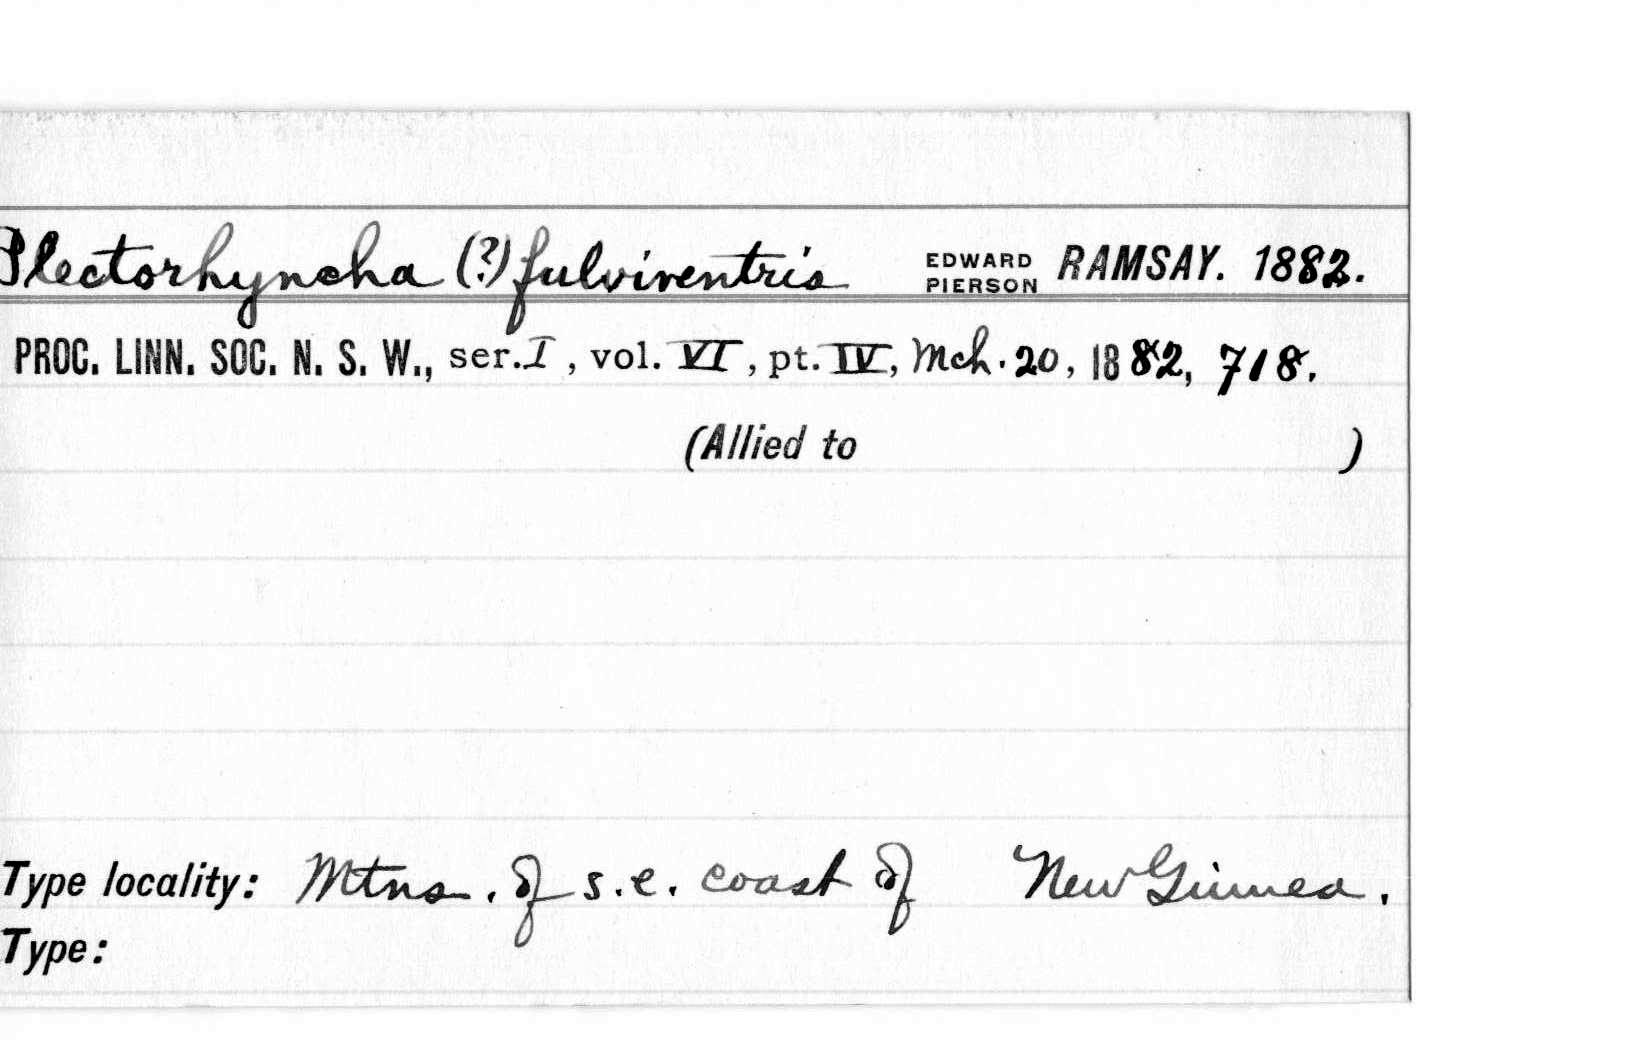 Plectorhyncha (?) fulviventris EDWARD PIERSON RAMSAY. 1882.
PROC. LINN. SOC. N. S. W., ser. I, vol. VI, pt. IV, Mch. 20, 1882, 718.
(Allied to )
Type locality: Mtns. of s.e. coast of New Guinea.
Type: